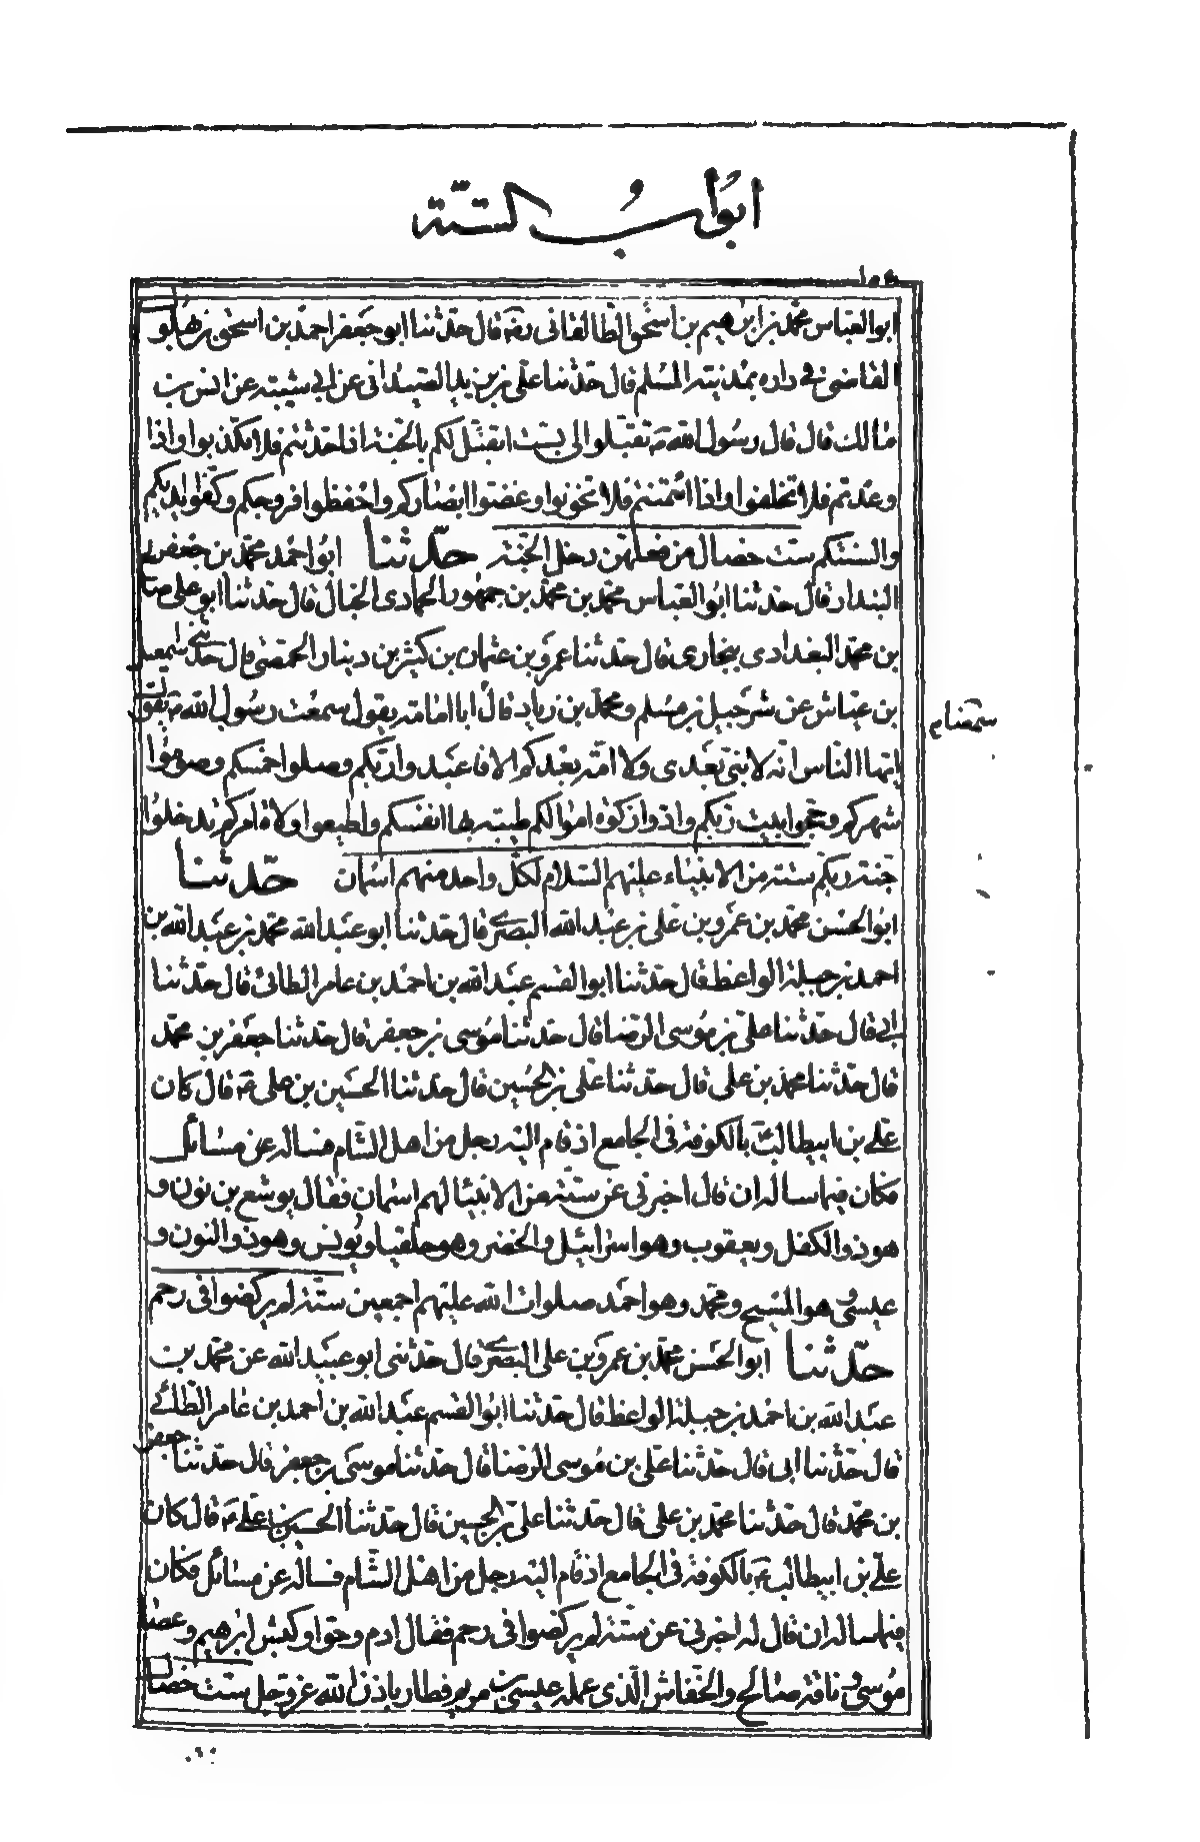 ابواب الستة
ابوالعباس محمد بن ابراهيم بن اسحق الطالقانى رضه قال حدثنا ابو جعفر احمد بن اسحق بن بهلول
القاضى فى داره بمدينة السلم قال حدثنا على بن يزيد الصيدانى عن ابى شيبة عن انس بن
مالك قال قال رسول الله ص تقبلوا الى بست اتقبل لكم بالجنة اذا حدثتم فلا تكذبوا واذا
وعدتم فلا تخلفوا واذا ائتمنتم فلا تخونوا وغضوا ابصاركم واحفظوا فروجكم وكفوا ايديكم
والسنتكم ست خصال من فعلهن دخل الجنة حدثنا ابو احمد محمد بن جعفر
البندار قال حدثنا ابو العباس محمد بن محمد بن جمهور الحمادى قال حدثنا ابو على صالح
بن محمد البغدادى ببخارى قال حدثنا عمرو بن عثمان بن كثير بن دينار الحمصى قال حدثنا اسمعيل
بن عياش عن شرحبيل بن مسلم ومحمد بن زياد قال ابا امامة يقول سمعت رسول الله ص يقول
سمعنا م
ايها الناس انه لا نبى بعدى ولا امة بعدكم الا فاعبدوا ربكم وصلوا خمسكم وصوموا
شهركم وحجوا بيت ربكم وادوا زكوة اموالكم طيبة بها انفسكم واطيعوا ولاة امركم تدخلوا
جنة ربكم ستة من الانبياء عليهم السلام لكل واحد منهم اسمان حدثنا
ابو الحسن محمد بن عمرو بن على بن عبد الله البصرى قال حدثنا ابو عبد الله محمد بن عبد الله بن
احمد بن جبلة الواعظ قال حدثنا ابو القسم عبد الله بن احمد بن عامر الطائى قال حدثنا
ابى قال حدثنا على بن موسى الرضا قال حدثنا موسى بن جعفر قال حدثنا جعفر بن محمد
قال حدثنا محمد بن على قال حدثنا على بن الحسين قال حدثنا الحسين بن على ع قال كان
على بن ابيطالب ع بالكوفة فى الجامع اذ قام اليه رجل من اهل الشام فساله عن مسائل
فكان فيما ساله ان قال اخبرنى عن ستة من الانبيا لهم اسمان فقال يوشع بن نون و
هو ذو الكفل ويعقوب وهو اسرائيل والخضر وهو حلقيا ويونس وهو ذو النون و
عيسى وهو المسيح ومحمد وهو احمد صلوات الله عليهم اجمعين ستة لم يركضوا فى رحم
حدثنا ابو الحسن محمد بن عمرو بن على البصرى قال حدثنى ابو عبد الله عن محمد بن
عبد الله بن احمد بن جبلة الواعظ قال حدثنا ابو القسم عبد الله بن احمد بن عامر الطائى
قال حدثنا ابى قال حدثنا على بن موسى الرضا قال حدثنا موسى بن جعفر قال حدثنا جعفر
بن محمد قال حدثنا محمد بن على قال حدثنا على بن الحسين قال حدثنا الحسين بن على ع قال كان
على بن ابيطالب ع بالكوفة فى الجامع اذ قام اليه رجل من اهل الشام فساله عن مسائل فكان
فيما ساله ان قال له اخبرنى عن ستة لم يركضوا فى رحم فقال ادم وحوا وكبش ابرهيم وعصا
موسى و ناقة صالح والخفاش الذى عمله عيسى بن مريم فطار باذن الله عز وجل ست خصال